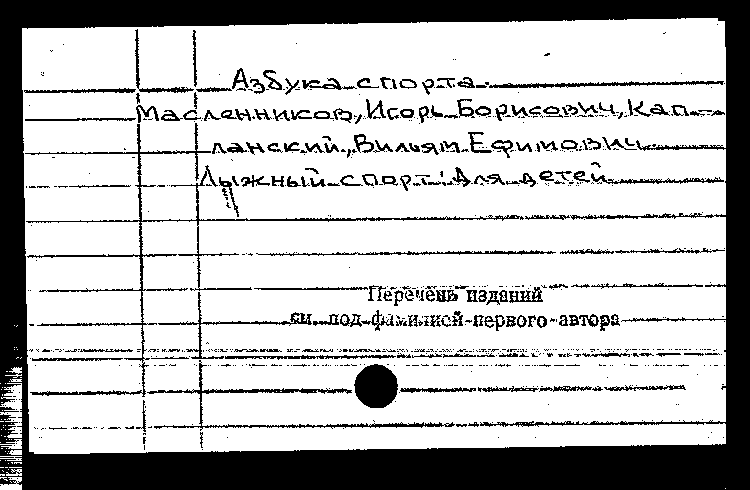 Азбука спорта.
Масленников, Игорь Борисович, Кап-
ланский, Вильям Ефимович
Лыжный спорт: Для детей
Перечень изданий
см. под фамилией первого автора